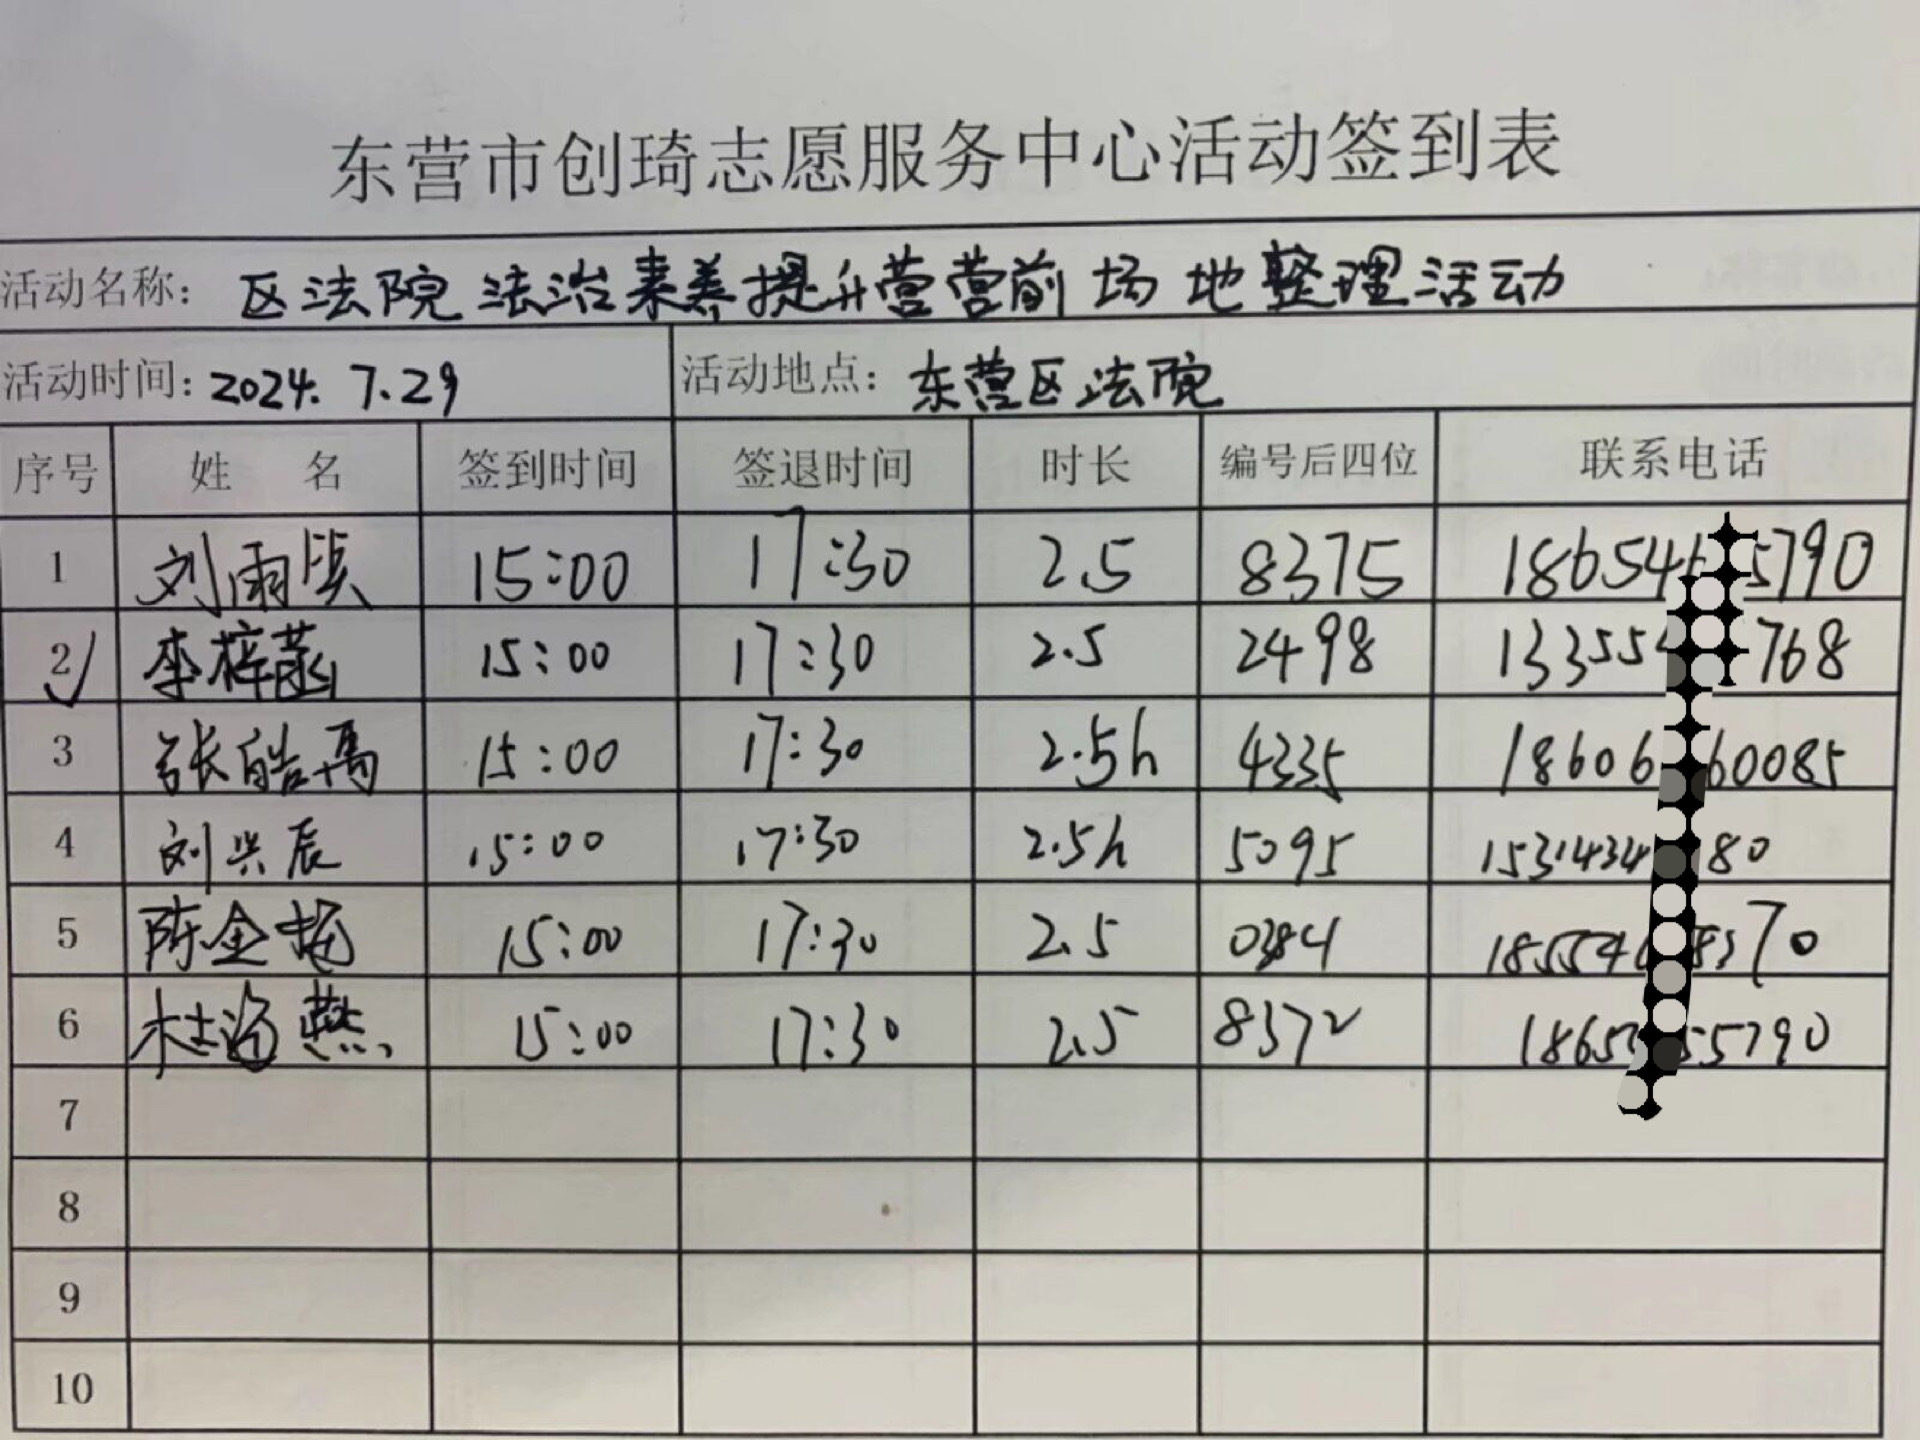 东营市创琦志愿服务中心活动签到表
活动名称: 区法院法治素养提升营营前场地整理活动
活动时间: 2024.7.29 活动地点: 东营区法院
序号 姓 名 签到时间 签退时间 时长 编号后四位 联系电话
1 刘雨 15:00 17:30 2.5 8375 5790
2 李梓菡 15:00 17:30 2.5 2498 768
3 张皓禹 15:00 17:30 2.5h 4335 60085
4 刘兴辰 15:00 17:30 2.5h 5095 80
5 陈金 15:00 17:30 2.5 70
6 杜海燕 15:00 17:30 2.5 8372 5790
7
8
9
10